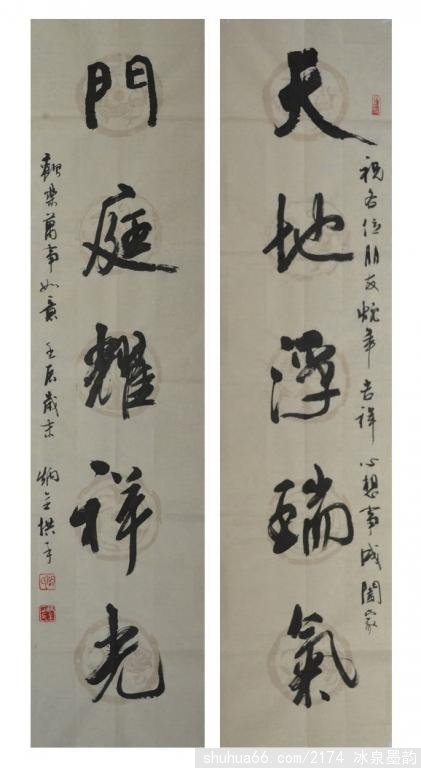 天地浮瑞氣
祝各位朋友蛇年吉祥心想事成闔家
門庭耀祥光
歡樂萬事如意 壬辰歲末 拱手
shuhua66.com/2174 冰泉墨韵